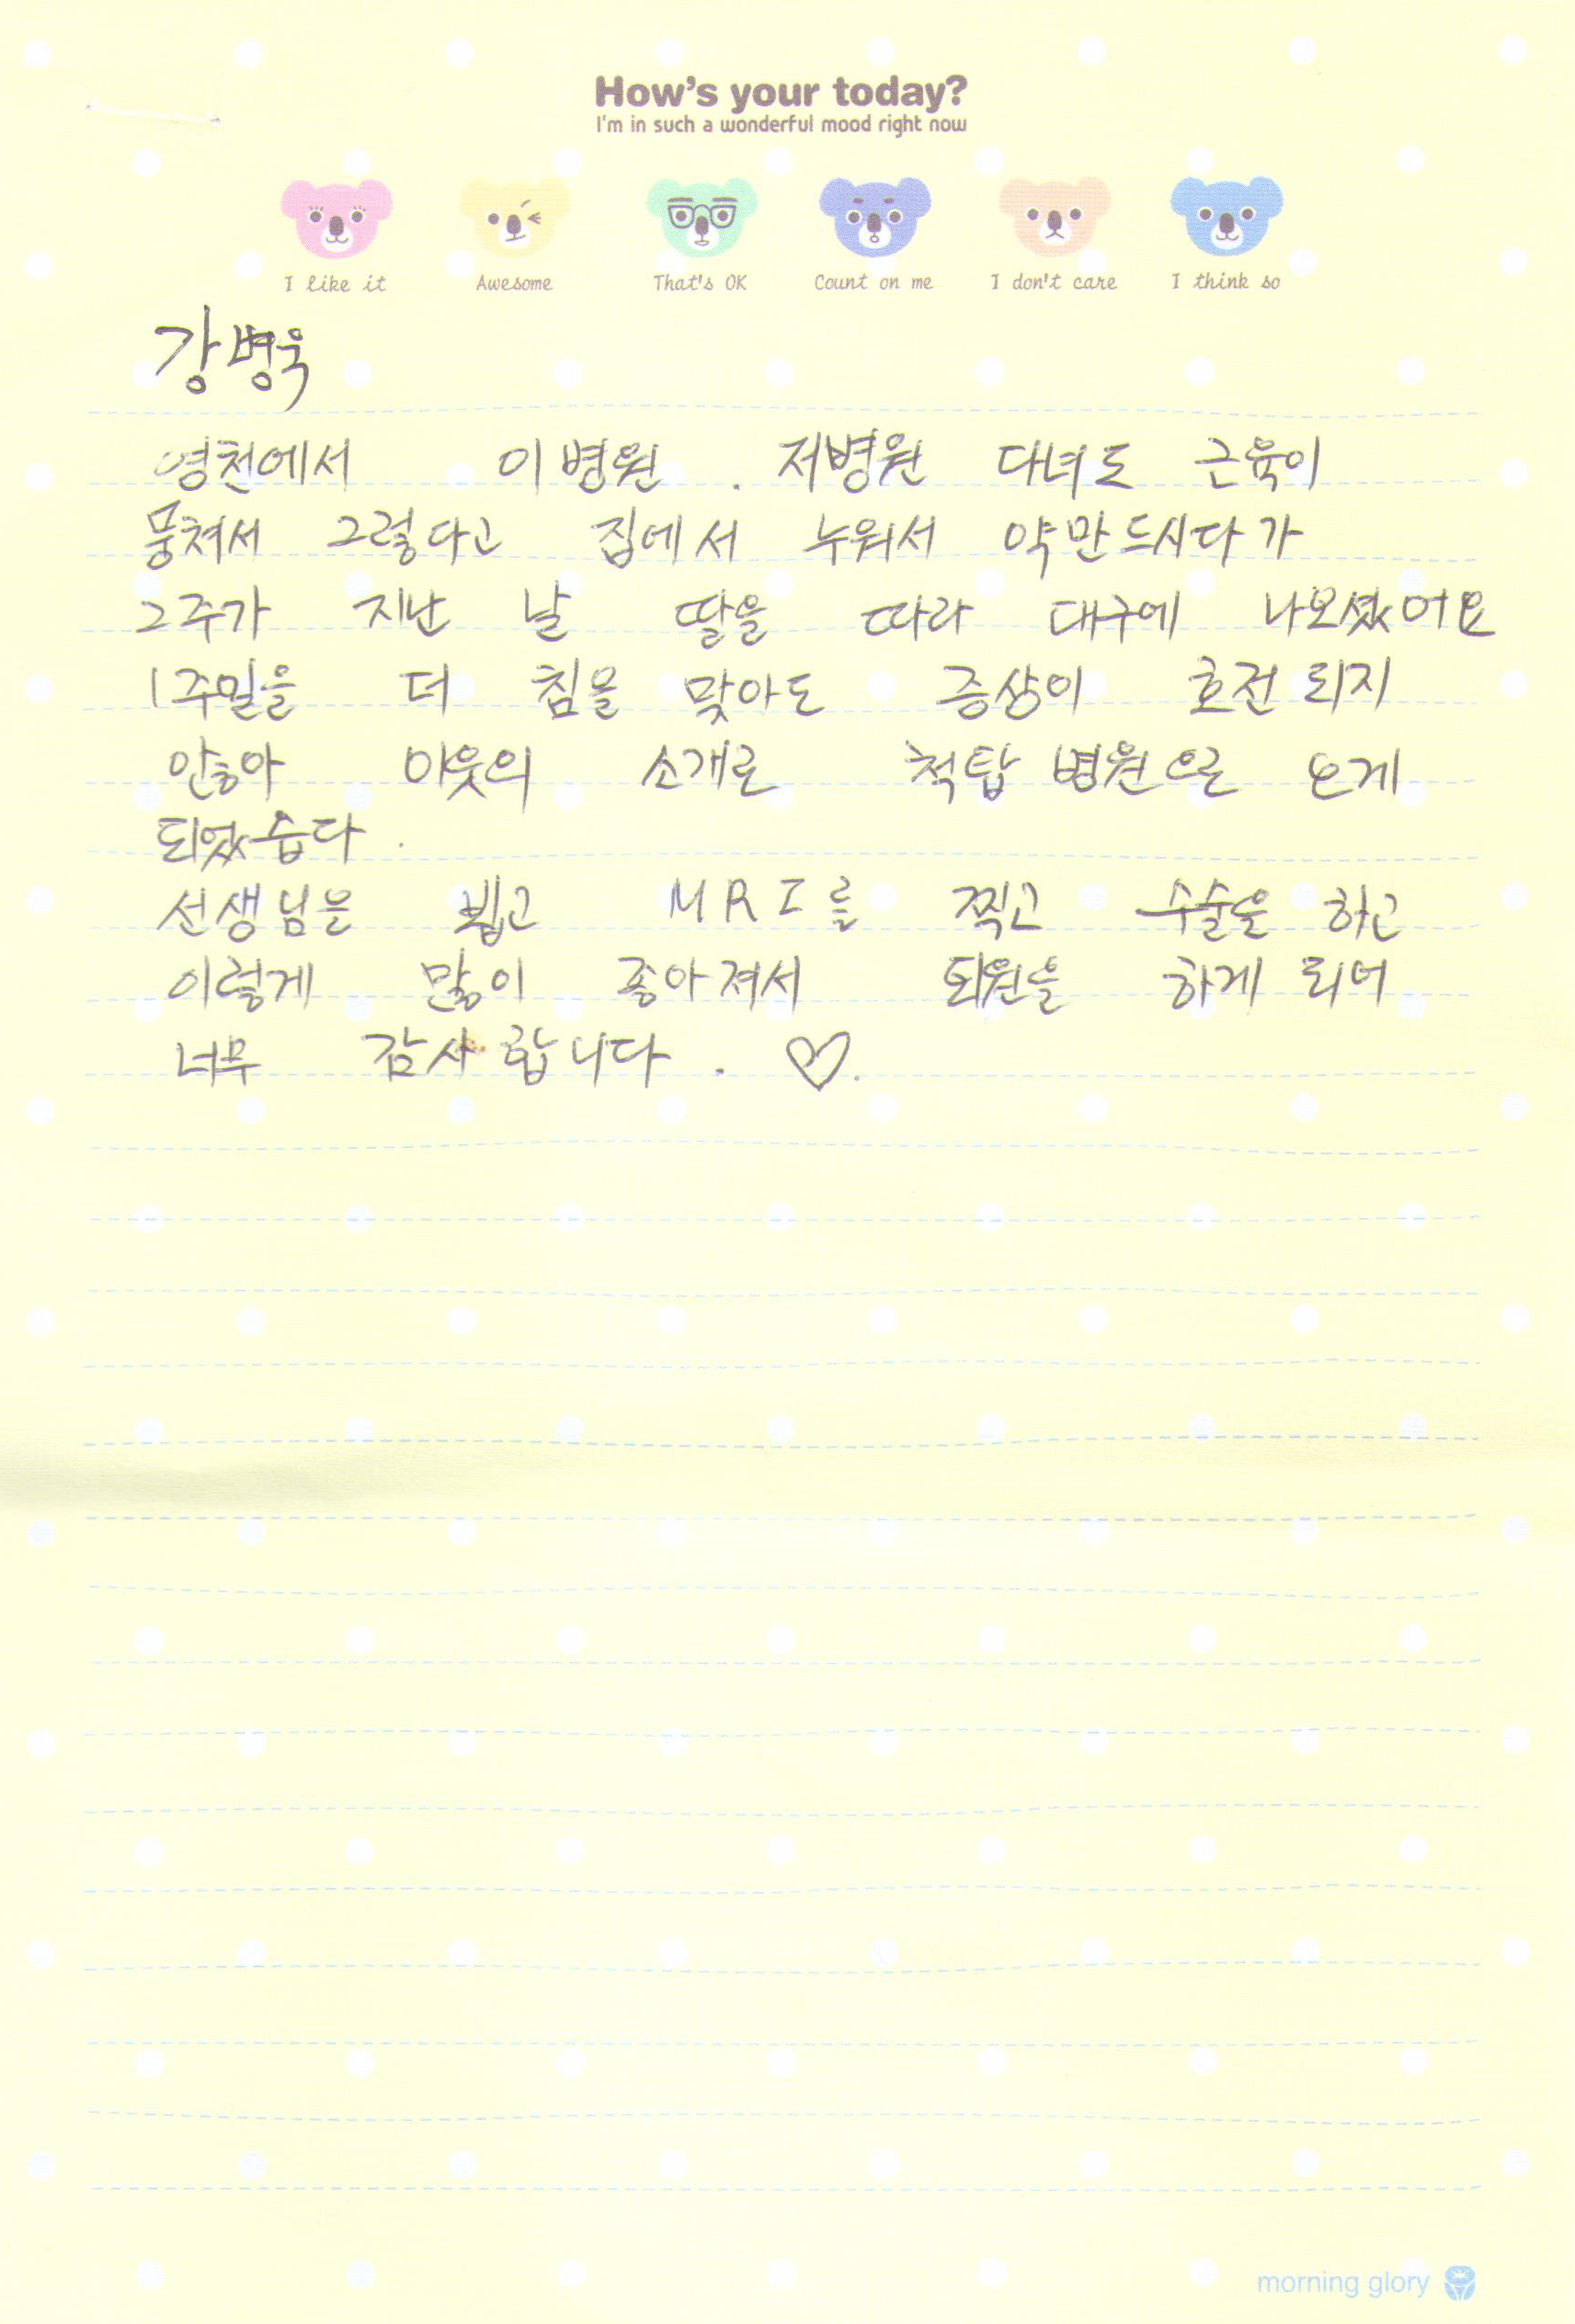 How's your today?
I'm in such a wonderful mood right now
I like it Awesome That's OK Count on me I don't care I think so
강병욱
영천에서 이병원 . 저병원 다녀도 근육이
뭉쳐서 그렇다고 집에서 누워서 약만드시다가
2주가 지난 날 딸을 따라 대구에 나오셨어요
1주일을 더 침을 맞아도 증상이 호전되지
않아 이웃의 소개로 척탑병원으로 오게
되었습다 .
선생님을 뵙고 MRI를 찍고 수술을 하고
이렇게 많이 좋아져서 퇴원을 하게 되어
너무 감사합니다 . ♡.
morning glory